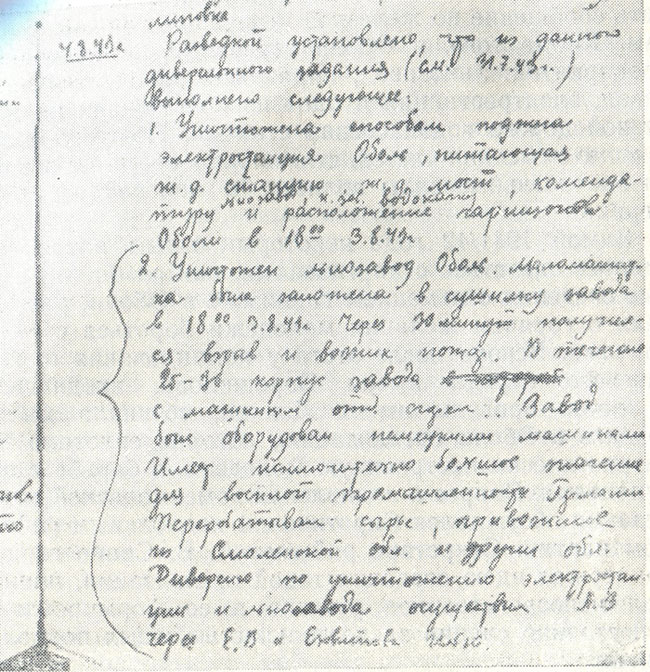 липовке
4.8.43г. Разведкой установлено, что из данного
диверсионного задания (см. 31.7.43г.)
выполнено следующее:
1. Уничтожена способом поджога
электростанция Оболь, питающая
ж.д. станцию, ж.д. мост, коменда-
льнозавод, к. зав. водокачку
туру и расположение гарнизонов
Оболи в 18⁰⁰ 3.8.43г.
2. Уничтожен льнозавод Оболь. Маломагнит-
ка была заложена в сушилку завода
в 18⁰⁰ 3.8.43г. Через 30 минут получил-
ся взрыв и возник пожар. В течение
25-30 корпус завода
с машинным отд. сгорел. Завод
был оборудован немецкими машинами
Имел исключительно большое значение
для военной промышленности Германии
Перерабатывал сырье, привозимое
из Смоленской обл. и других обл.
Диверсию по уничтожению электростан-
ции и льнозавода осуществил
через Е.В и